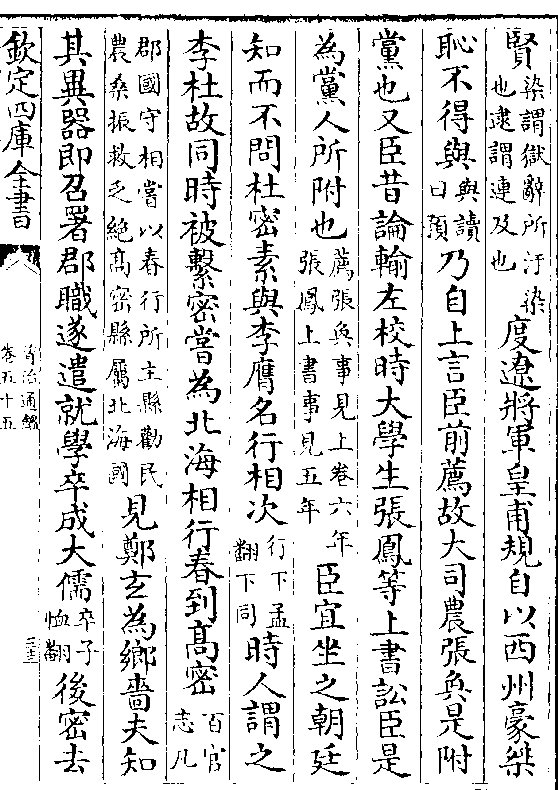 賢染謂獄辭所汙染也逮謂連及也度遼將軍皇甫規自以西州豪桀
恥不得與與讀曰預乃自上言臣前薦故大司農張奐是附
黨也又臣昔論輸左校時大學生張鳳等上書訟臣是
為黨人所附也薦張奐事見上卷六年張鳳上書事見五年臣宜坐之朝廷
知而不問杜密素與李膺名行相次行下孟翻下同時人謂之
李杜故同時被繫密嘗為北海相行春到髙密百官志凡
郡國守相嘗以春行所主縣勸民農桑振救乏絶髙密縣屬北海國見鄭玄為鄉嗇夫知
其異器即召署郡職遂遣就學卒成大儒卒子恤翻後密去
欽定四庫全書
資治通鑑
卷五十五
三十三